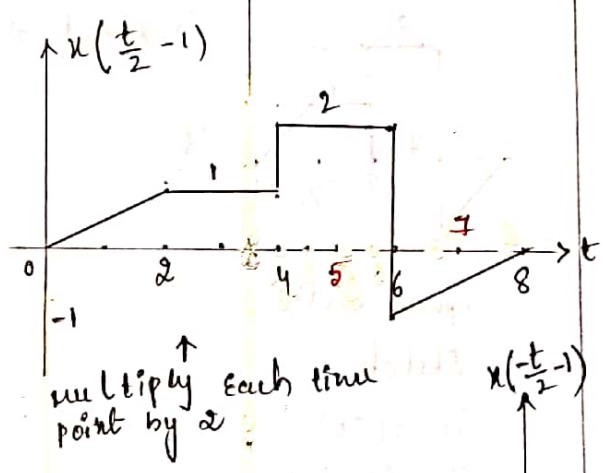 x(t/2 - 1)
2
1
0 2 4 5 6 7 8 t
-1
↑
multiply Each time
point by 2
x(-t/2 - 1)